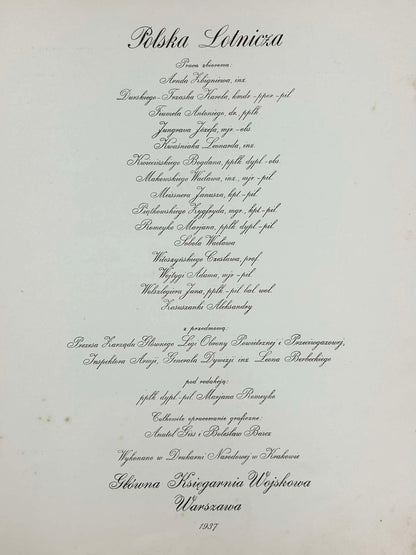 Polska Lotnicza
Praca zbiorowa:
Arnda Zbigniewa, inż.
Durskiego-Trzaska Karola, kmdr-ppor-pil
Fiumela Antoniego, dr, ppłk
Jungrava Józefa, mjr-obs.
Kwaśniaka Leonarda, inż.
Kwiecińskiego Bogdana, ppłk dypl-obs.
Makowskiego Wacława, inż., mjr-pil.
Meissnera Janusza, kpt-pil.
Piątkowskiego Zygfryda, mgr., kpt-pil.
Romeyko Marjana, ppłk dypl-pil.
Sobola Wacława
Witoszyńskiego Czesława, prof.
Wojtygi Adama, mjr-pil.
Wolszlegiera Jana, ppłk-pil. bal. wol.
Zasuszanki Aleksandry
z przedmową:
Prezesa Zarządu Głównego Ligi Obrony Powietrznej i Przeciwgazowej,
Inspektora Armji, Generała Dywizji inż. Leona Berbeckiego
pod redakcją:
ppłk dypl-pil Marjana Romeyko
Całkowite opracowanie graficzne:
Anatol Girs i Bolesław Barcz
Wykonano w Drukarni Narodowej w Krakowie
Główna Księgarnia Wojskowa
Warszawa
1937